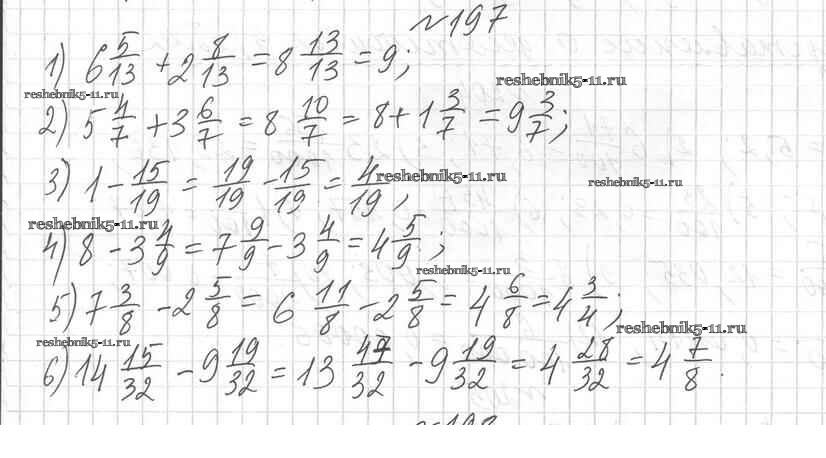 №197
1) 6 5/13 + 2 8/13 = 8 13/13 = 9;
reshebnik5-11.ru
reshebnik5-11.ru
2) 5 4/7 + 3 6/7 = 8 10/7 = 8 + 1 3/7 = 9 3/7;
3) 1 - 15/19 = 19/19 - 15/19 = 4/19,
reshebnik5-11.ru
reshebnik5-11.ru
reshebnik5-11.ru
4) 8 - 3 4/9 = 7 9/9 - 3 4/9 = 4 5/9;
reshebnik5-11.ru
5) 7 3/8 - 2 5/8 = 6 11/8 - 2 5/8 = 4 6/8 = 4 3/4;
reshebnik5-11.ru
reshebnik5-11.ru
6) 14 15/32 - 9 19/32 = 13 47/32 - 9 19/32 = 4 28/32 = 4 7/8.